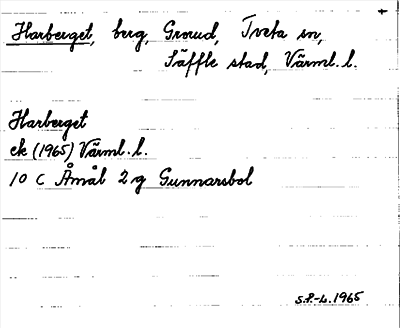 Harberget, berg, Grorud, Tveta sn,
Säffle stad, Värml. l.
Harberget
ek (1965) Värml. l.
10 C Åmål 2 g Gunnarsbol
S.P.-L. 1965